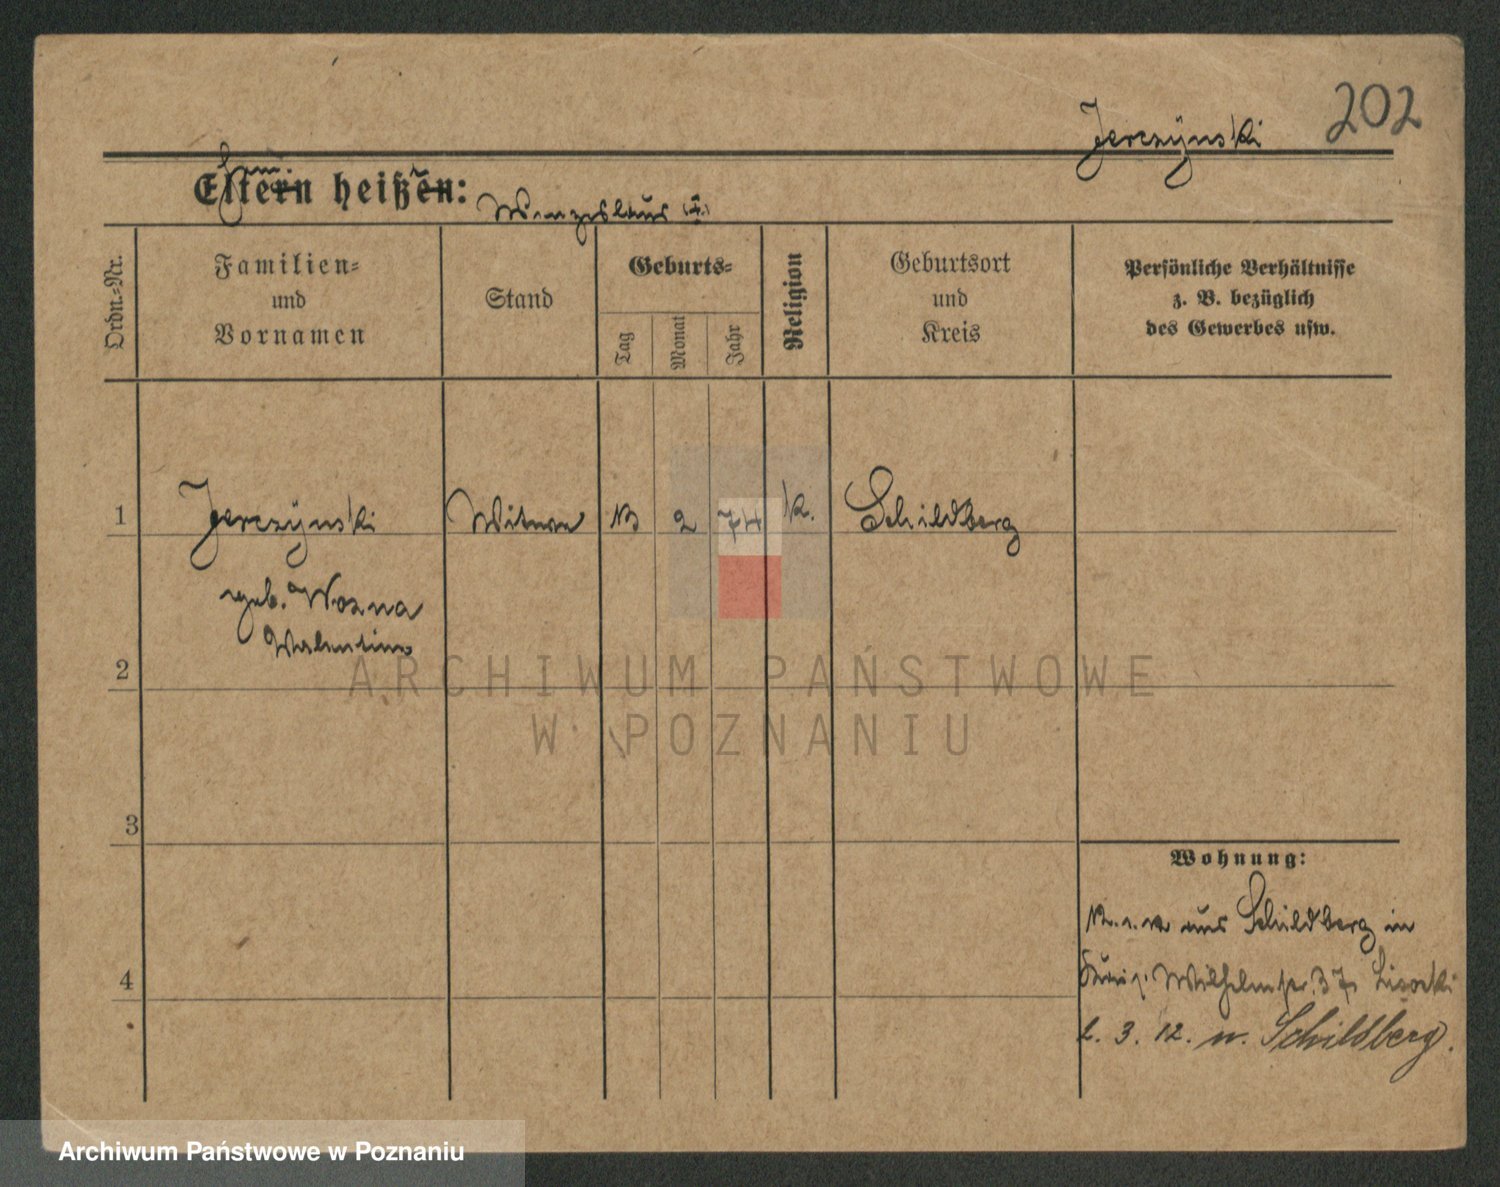 202
Jerczÿnski
Eltern heißen:
Wenzeslaus
Ordn.-Nr.
Familien-
und
Vornamen
Stand
Geburts-
Tag
Monat
Jahr
Religion
Geburtsort
und
Kreis
Persönliche Verhältnisse
z. B. bezüglich
des Gewerbes usw.
1 Jerczÿnski Witwe 13 2 74 k. Schildberg
geb. Wozna
Valentine
2
3
4
Wohnung:
aus Schildberg in
Wilhelmstr. 37
2. 3. 12. n. Schildberg.
ARCHIWUM PAŃSTWOWE
W POZNANIU
Archiwum Państwowe w Poznaniu